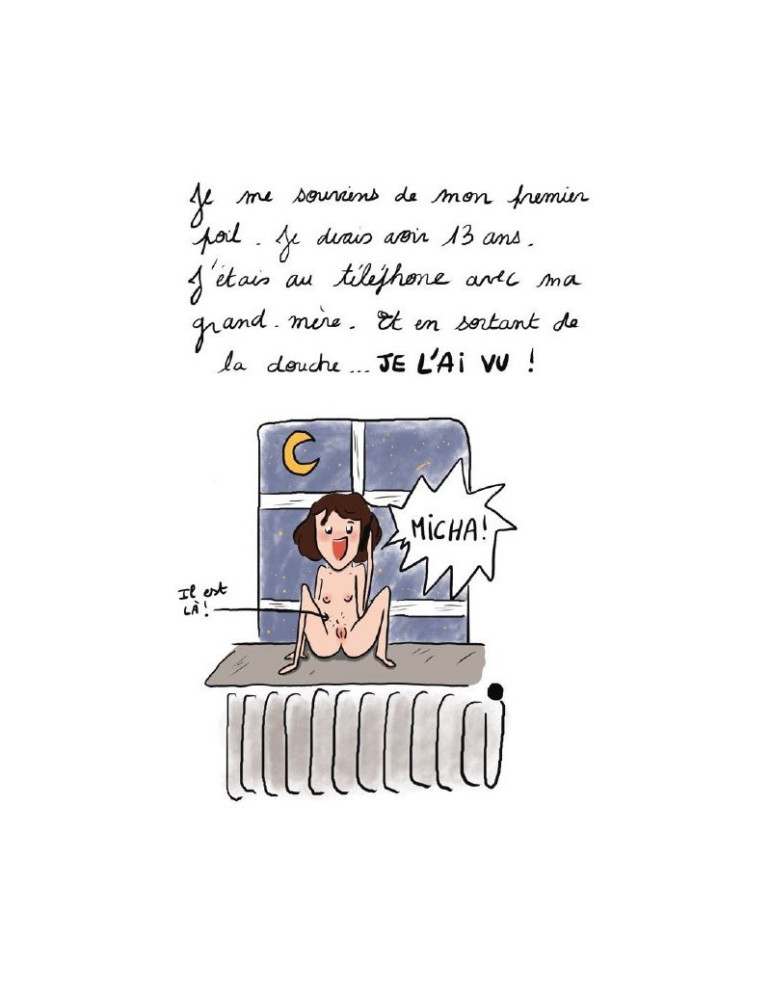 Je me souviens de mon premier
poil. Je devais avoir 13 ans.
J'étais au téléphone avec ma
grand-mère. Et en sortant de
la douche... JE L'Ai VU !
MiCHA!
Il est
LÀ!